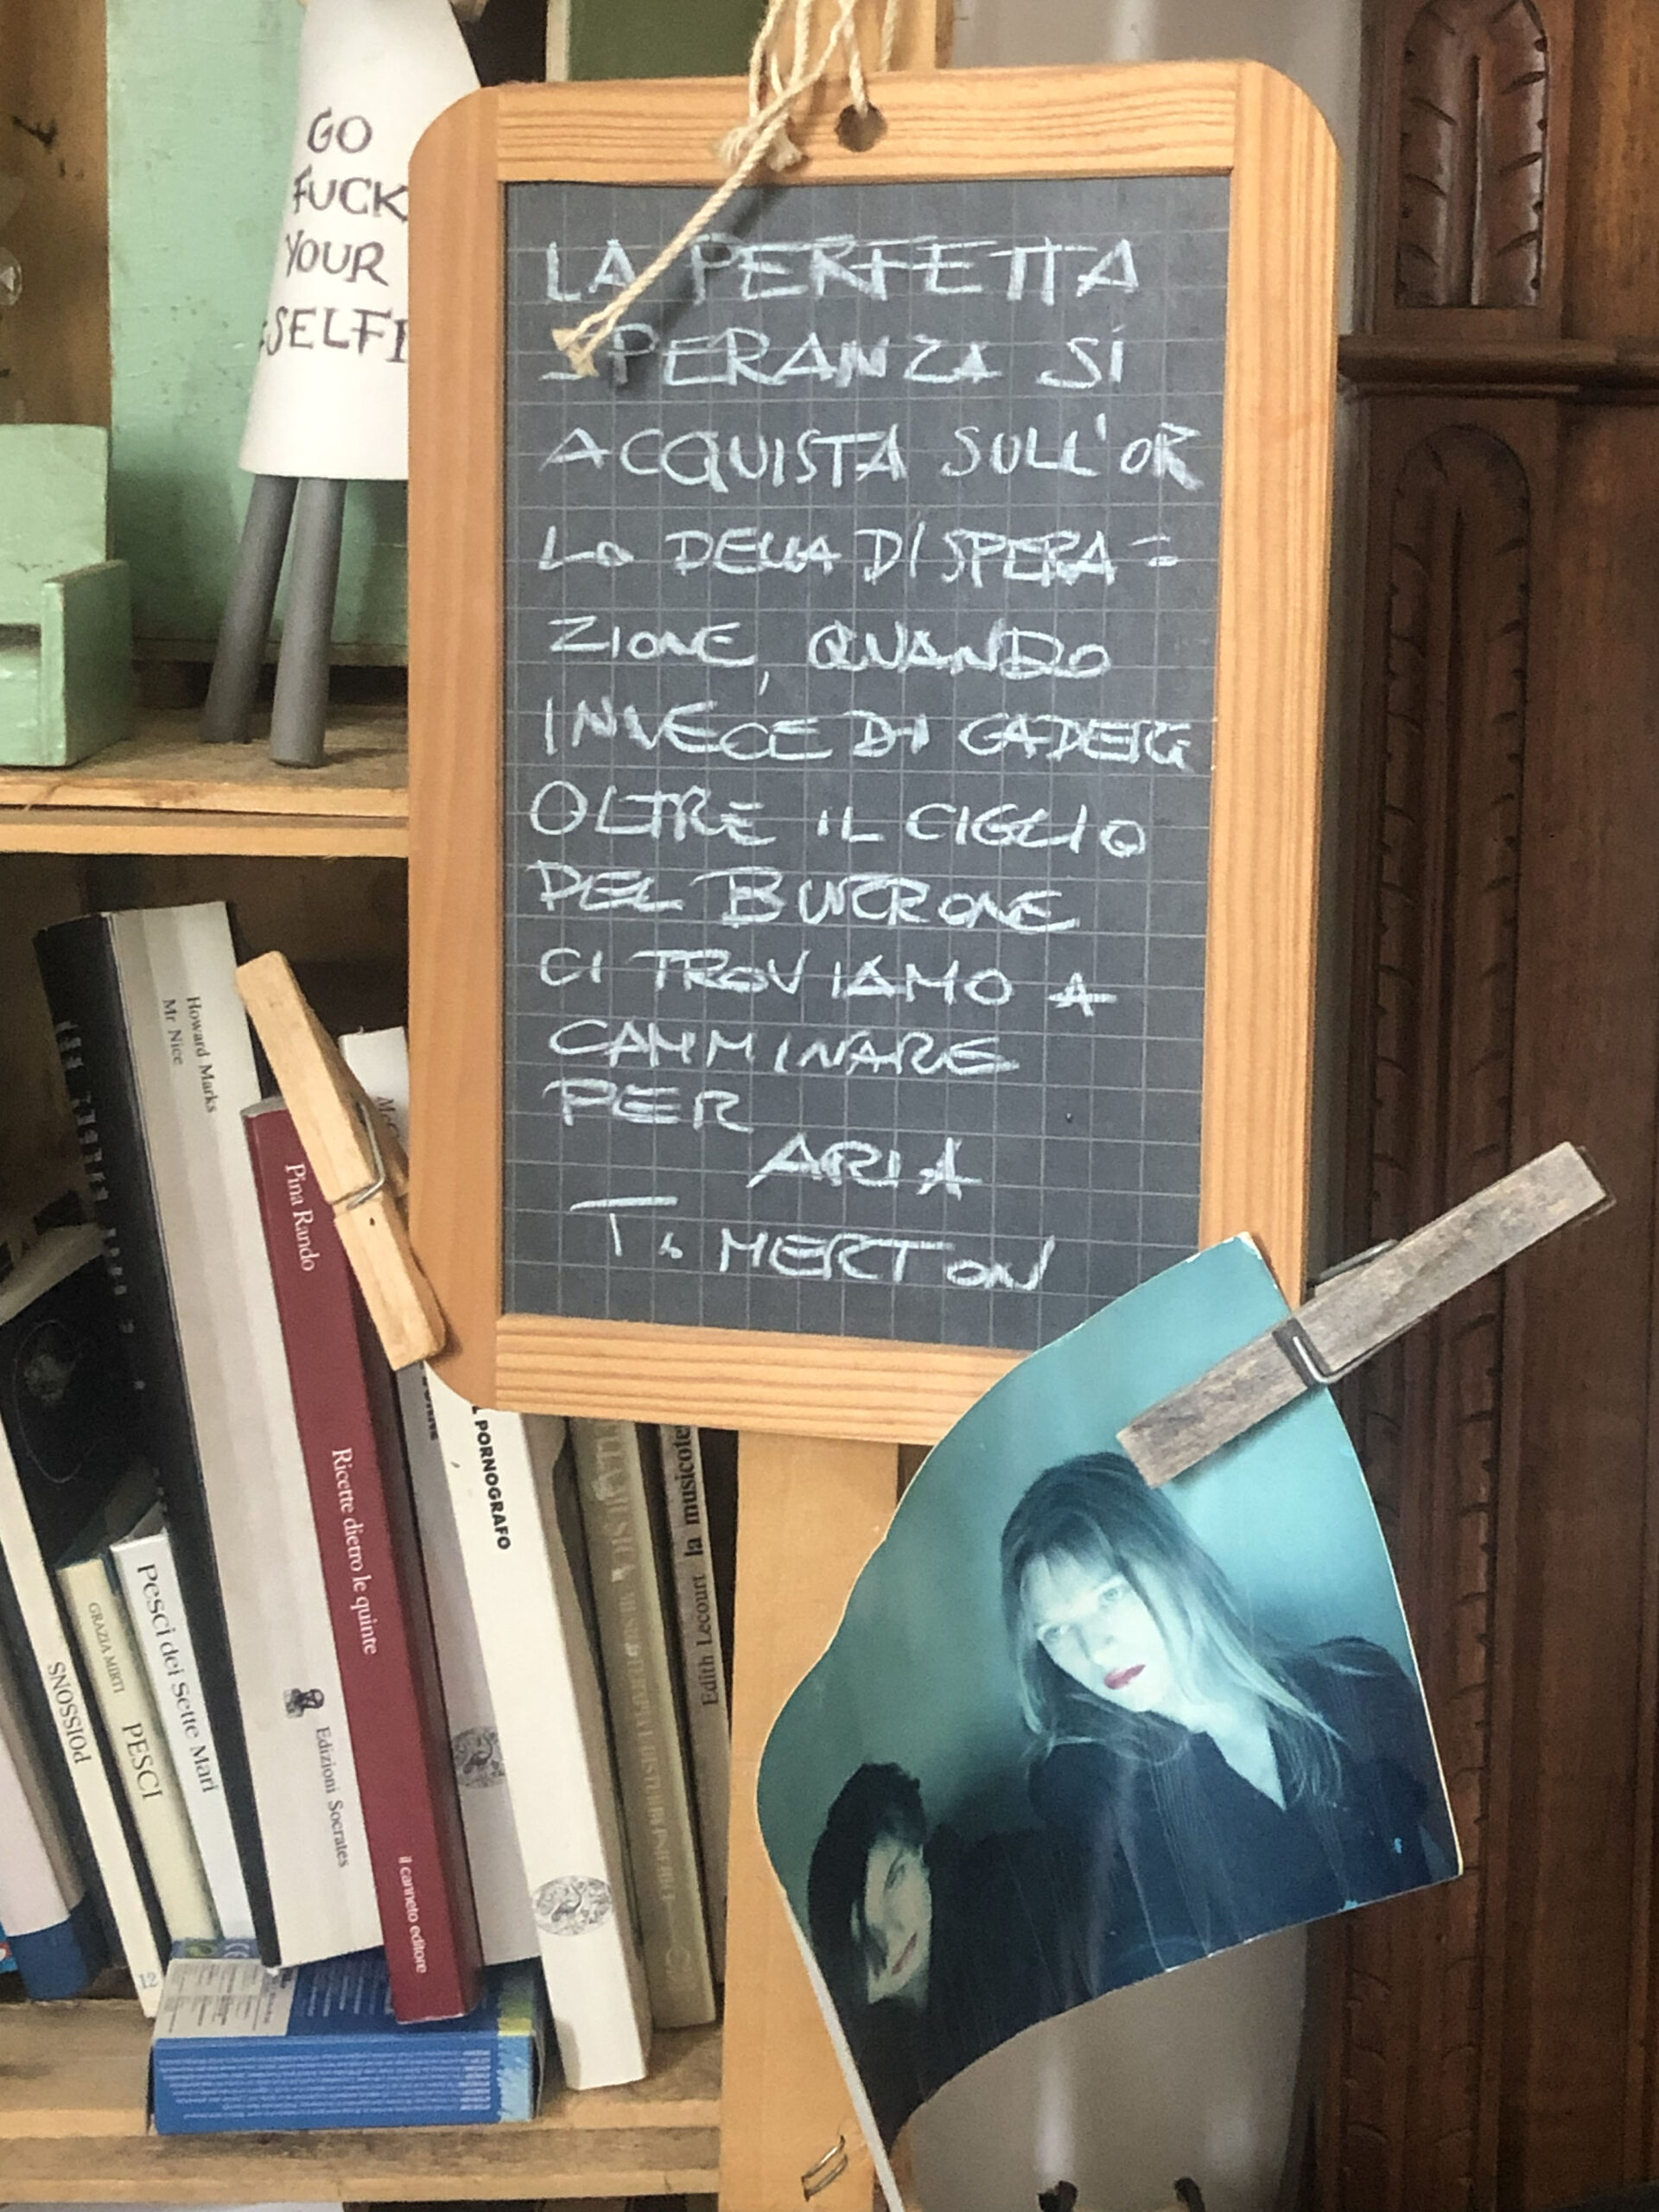 GO
FUCK
YOUR
SELFI
LA PERFETTA
SPERANZA SI
ACQUISTA SULL'OR
LO DELLA DISPERA=
ZIONE, QUANDO
INVECE DI CADERE
OLTRE IL CIGLIO
DEL BURRONE
CI TROVIAMO A
CAMMINARE
PER
ARIA
T. MERTON
Howard Marks
Mr Nice
Pina Rando
Ricette dietro le quinte
il canneto editore
Edizioni Socrates
L PORNOGRAFO
Edith Lecourt la musicote
Pesci dei Sette Mari
GRAZIA MIRTI PESCI
POISSONS
12